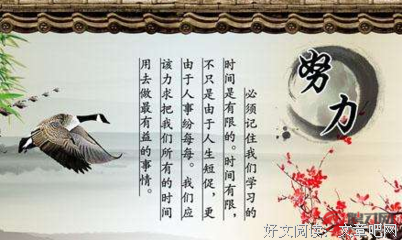 努力
必须记住我们学习的
时间是有限的。时间有限，
不只是由于人生短促，更
由于人事纷每每。我们应
该力求把我们所有的时间
用去做最有益的事情。
好文阅读：文章吧网